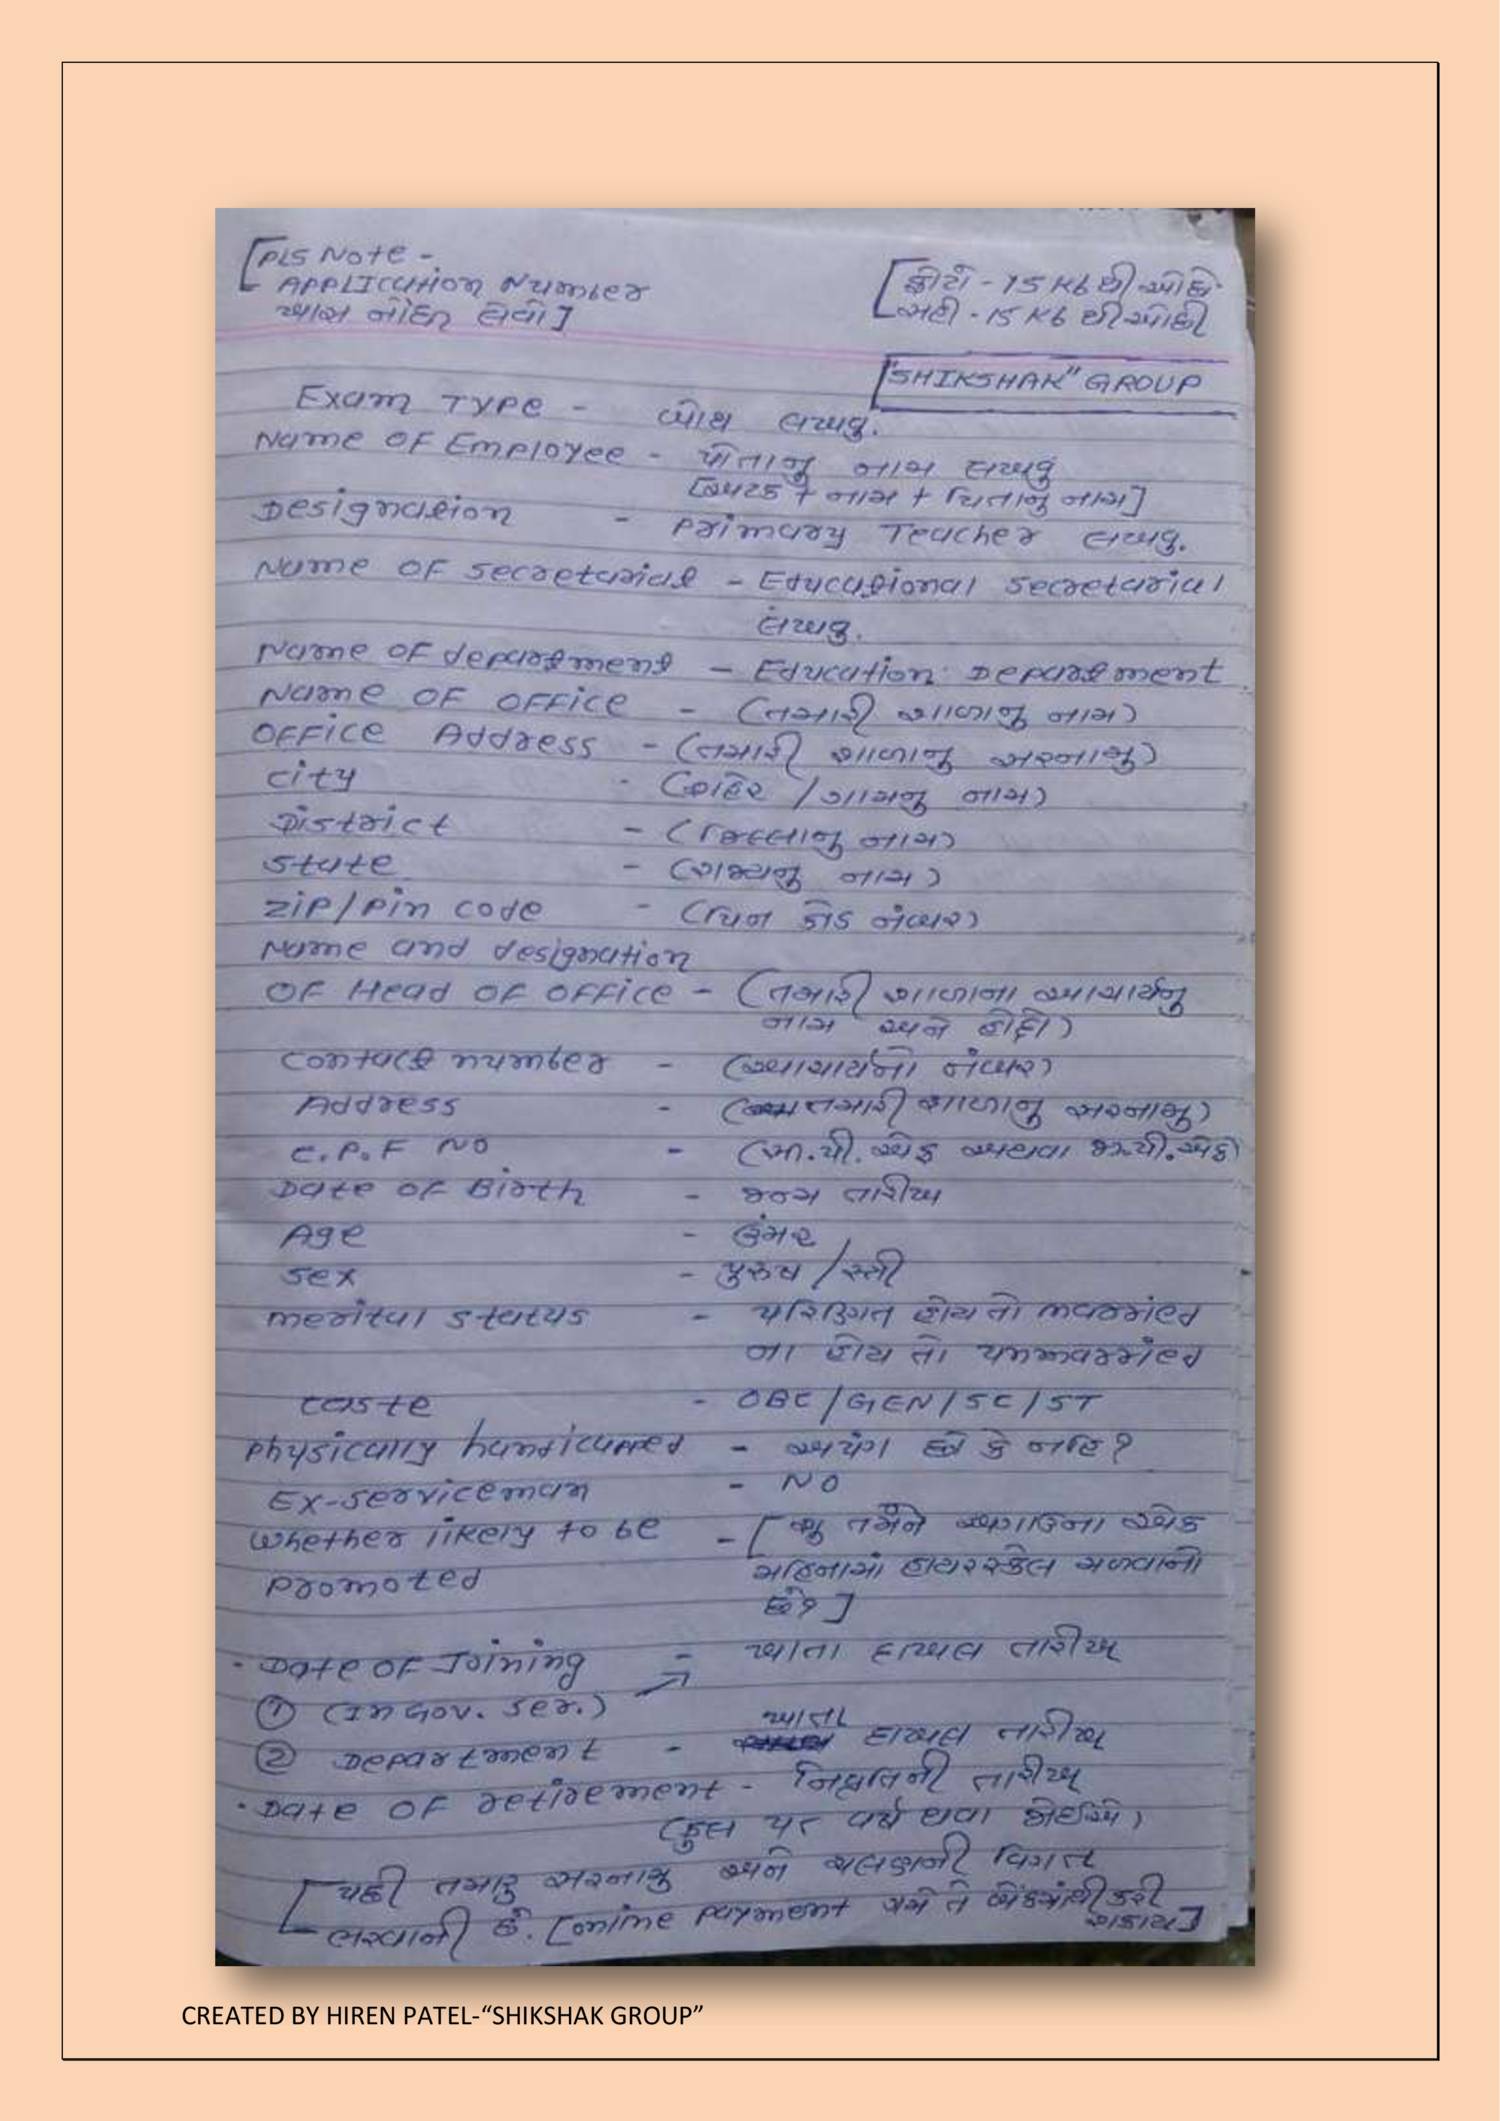 [PLS Note -
APPLICATION Number
ખાસ નોંધિ લેવો]
[ફોટો - 15 Kb થી ઓછો
સહી - 15 Kb થી ઓછી
"SHIKSHAK" GROUP
Exam Type - બોથ લખવુ.
Name OF Employee - પોતાનુ નામ લખવું
[અટક + નામ + પિતાનુ નામ]
Designation - Primary Teacher લખવુ.
Name OF secretarial - Educational secretarial
લખવુ.
Name OF department - Education Department
Name OF OFFice - (તમારી શાળાનુ નામ)
OFFice Address - (તમારી શાળાનુ સરનામુ)
city - (શહેર / ગામનુ નામ)
District - (જિલ્લાનુ નામ)
state - (રાજ્યનુ નામ)
zip/pin code - (પિન કોડ નંબર)
Name and designation
OF Head OF OFFice - (તમારી શાળાના આચાર્યનુ
નામ અને હોદ્દો)
contact number - (આચાર્યનો નંબર)
Address - (તમારી શાળાનુ સરનામુ)
C.P.F NO - (સી.પી.એફ અથવા જી.પી.એફ)
Date OF Birth - જન્મ તારીખ
Age - ઉંમર
sex - પુરુષ / સ્ત્રી
merital status - પરિણિત હોય તો married
ના હોય તો unmarried
caste - OBC/GEN/SC/ST
Physically handicapped - અપંગ છો કે નહિ?
Ex-serviceman - NO
Whether likely to be - [શુ તમને આગામી એક
promoted મહિનામાં હાયરસ્કેલ મળવાનો
છે?]
. Date OF Joining - ખાતા દાખલ તારીખ
① (In Gov. Ser.)
② Department - ખાતા દાખલ તારીખ
. Date OF retirement - નિવૃતિની તારીખ
(કુલ ૫૮ વર્ષ થવા જોઈએ)
[પછી તમારુ સરનામુ અને ચલણની વિગત
ભરવાની છે. [online payment ગમે તે બેંકમાંથી કરી
શકાય]
CREATED BY HIREN PATEL-“SHIKSHAK GROUP”